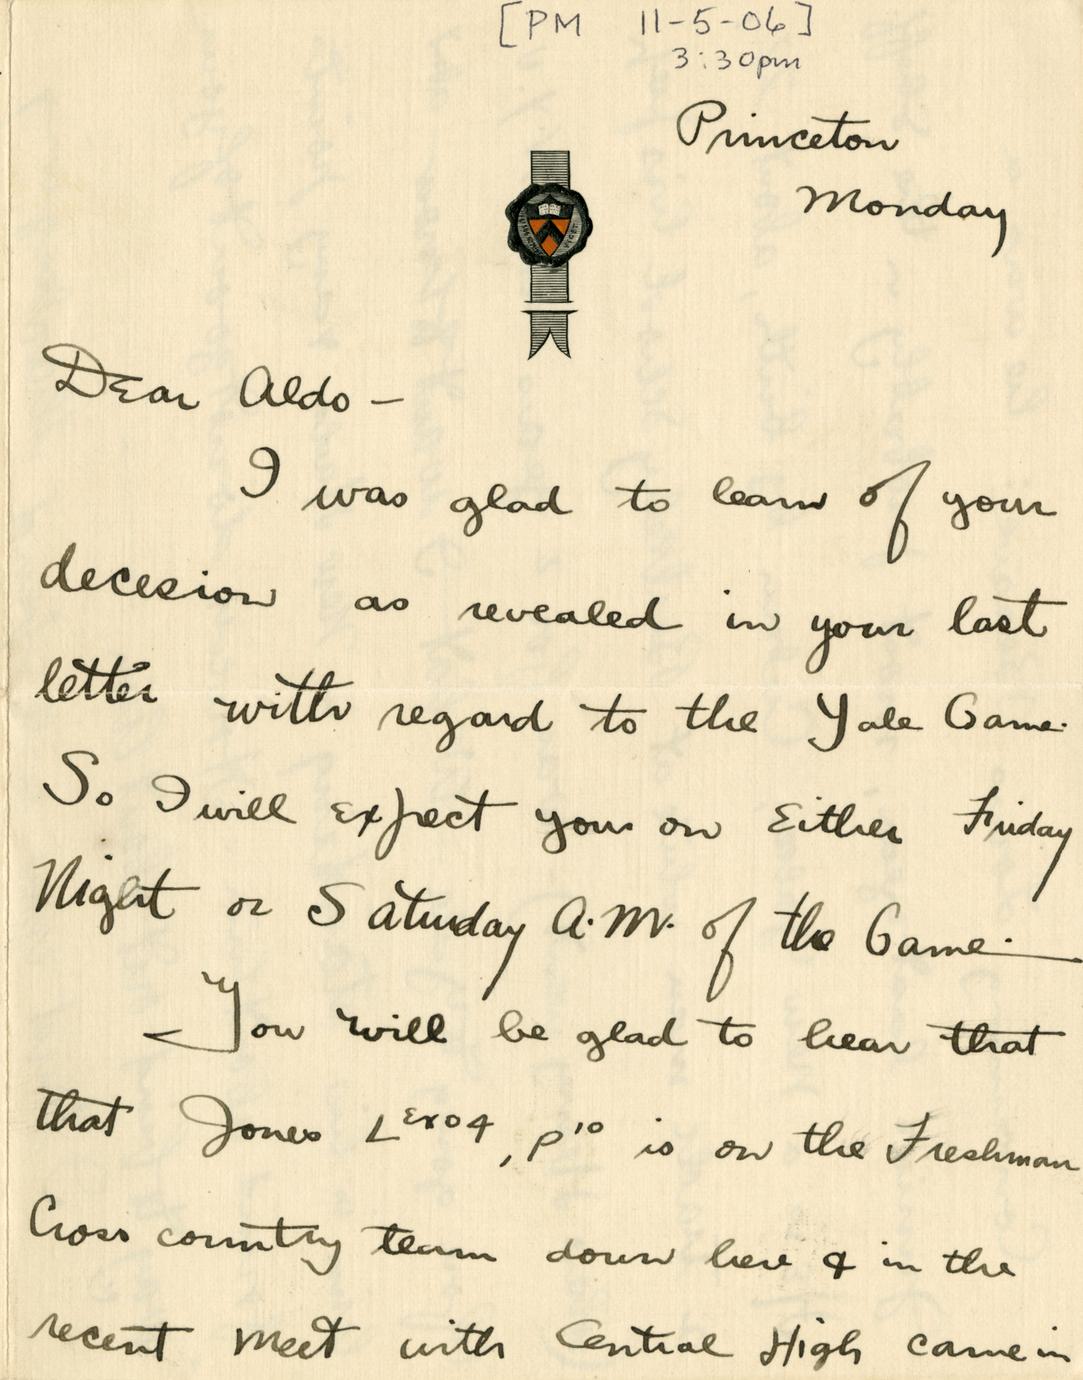 [PM 11-5-06]
3:30pm
Princeton
Monday
Dear Aldo –
I was glad to learn of your
decesion as revealed in your last
letter with regard to the Yale Game.
So I will expect you on Either Friday
Night or Saturday A.M. of the Game.
You will be glad to hear that
that Jones L Ex 04, P '10 is on the Freshman
Cross country team down here & in the
recent meet with Central High came in